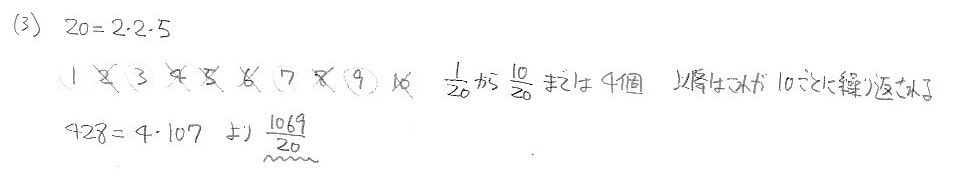 (3) 20=2・2・5
1 2 3 4 5 6 7 8 9 10 1/20から10/20までは4個 以降はこれが10ごとに繰り返される
428=4・107 より 1069/20